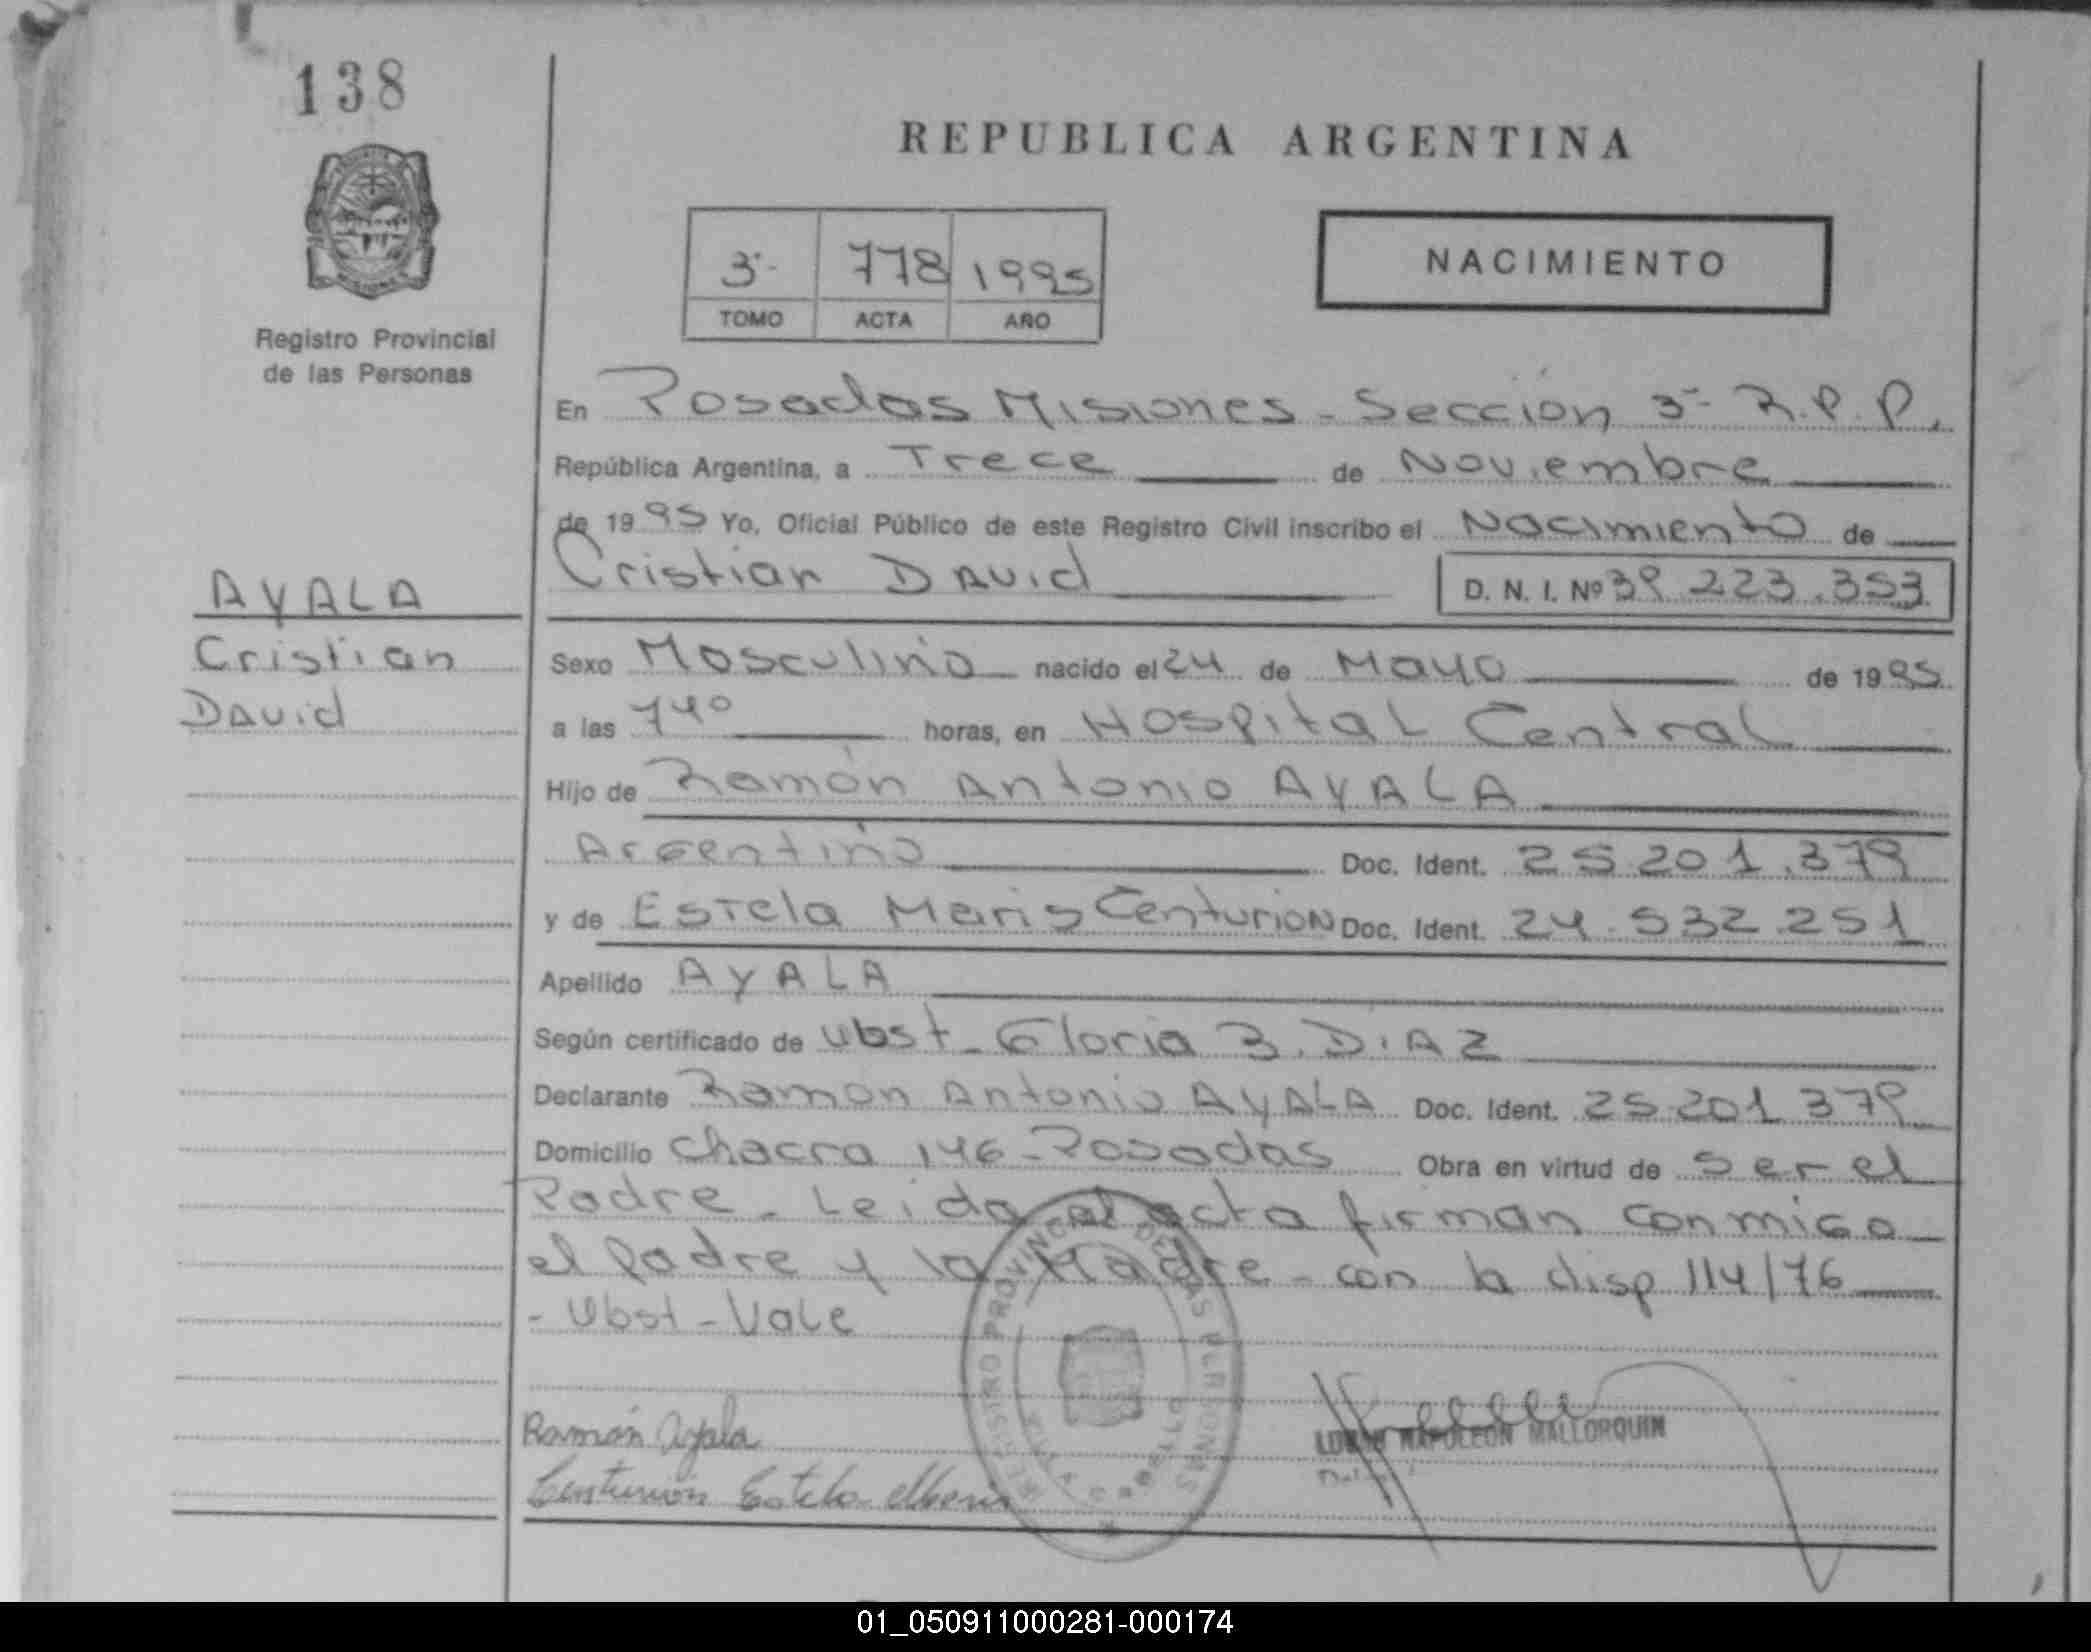 138
REPUBLICA ARGENTINA
3º- 778 1995
TOMO ACTA AÑO
NACIMIENTO
Registro Provincial
de las Personas
En Posadas Misiones - Sección 3ª R.P.P.
República Argentina, a Trece de Noviembre
de 1995 Yo, Oficial Público de este Registro Civil inscribo el Nacimiento de
Cristian David D. N. I. Nº 39.223.353
AYALA
Cristian
David
Sexo Masculino nacido el 24 de Mayo de 1995
a las 740 horas, en Hospital Central
Hijo de Ramón Antonio AYALA
Argentino Doc. Ident. 25.201.379
y de Estela Maris Centurion Doc. Ident. 24.532.251
Apellido AYALA
Según certificado de Obst - Gloria B. DiAZ
Declarante Ramon Antonio AYALA Doc. Ident. 25.201.379
Domicilio Chacra 146 - Posadas Obra en virtud de ser el
Padre - Leida el acta firman conmigo
el Padre y la Madre - con la disp 114/76
- Obst - Vale
REGISTRO PROVINCIAL DE LAS PERSONAS
Ramón Ayala
Centurión Estela Maris
NAPOLEON MALLORQUIN
01_050911000281-000174